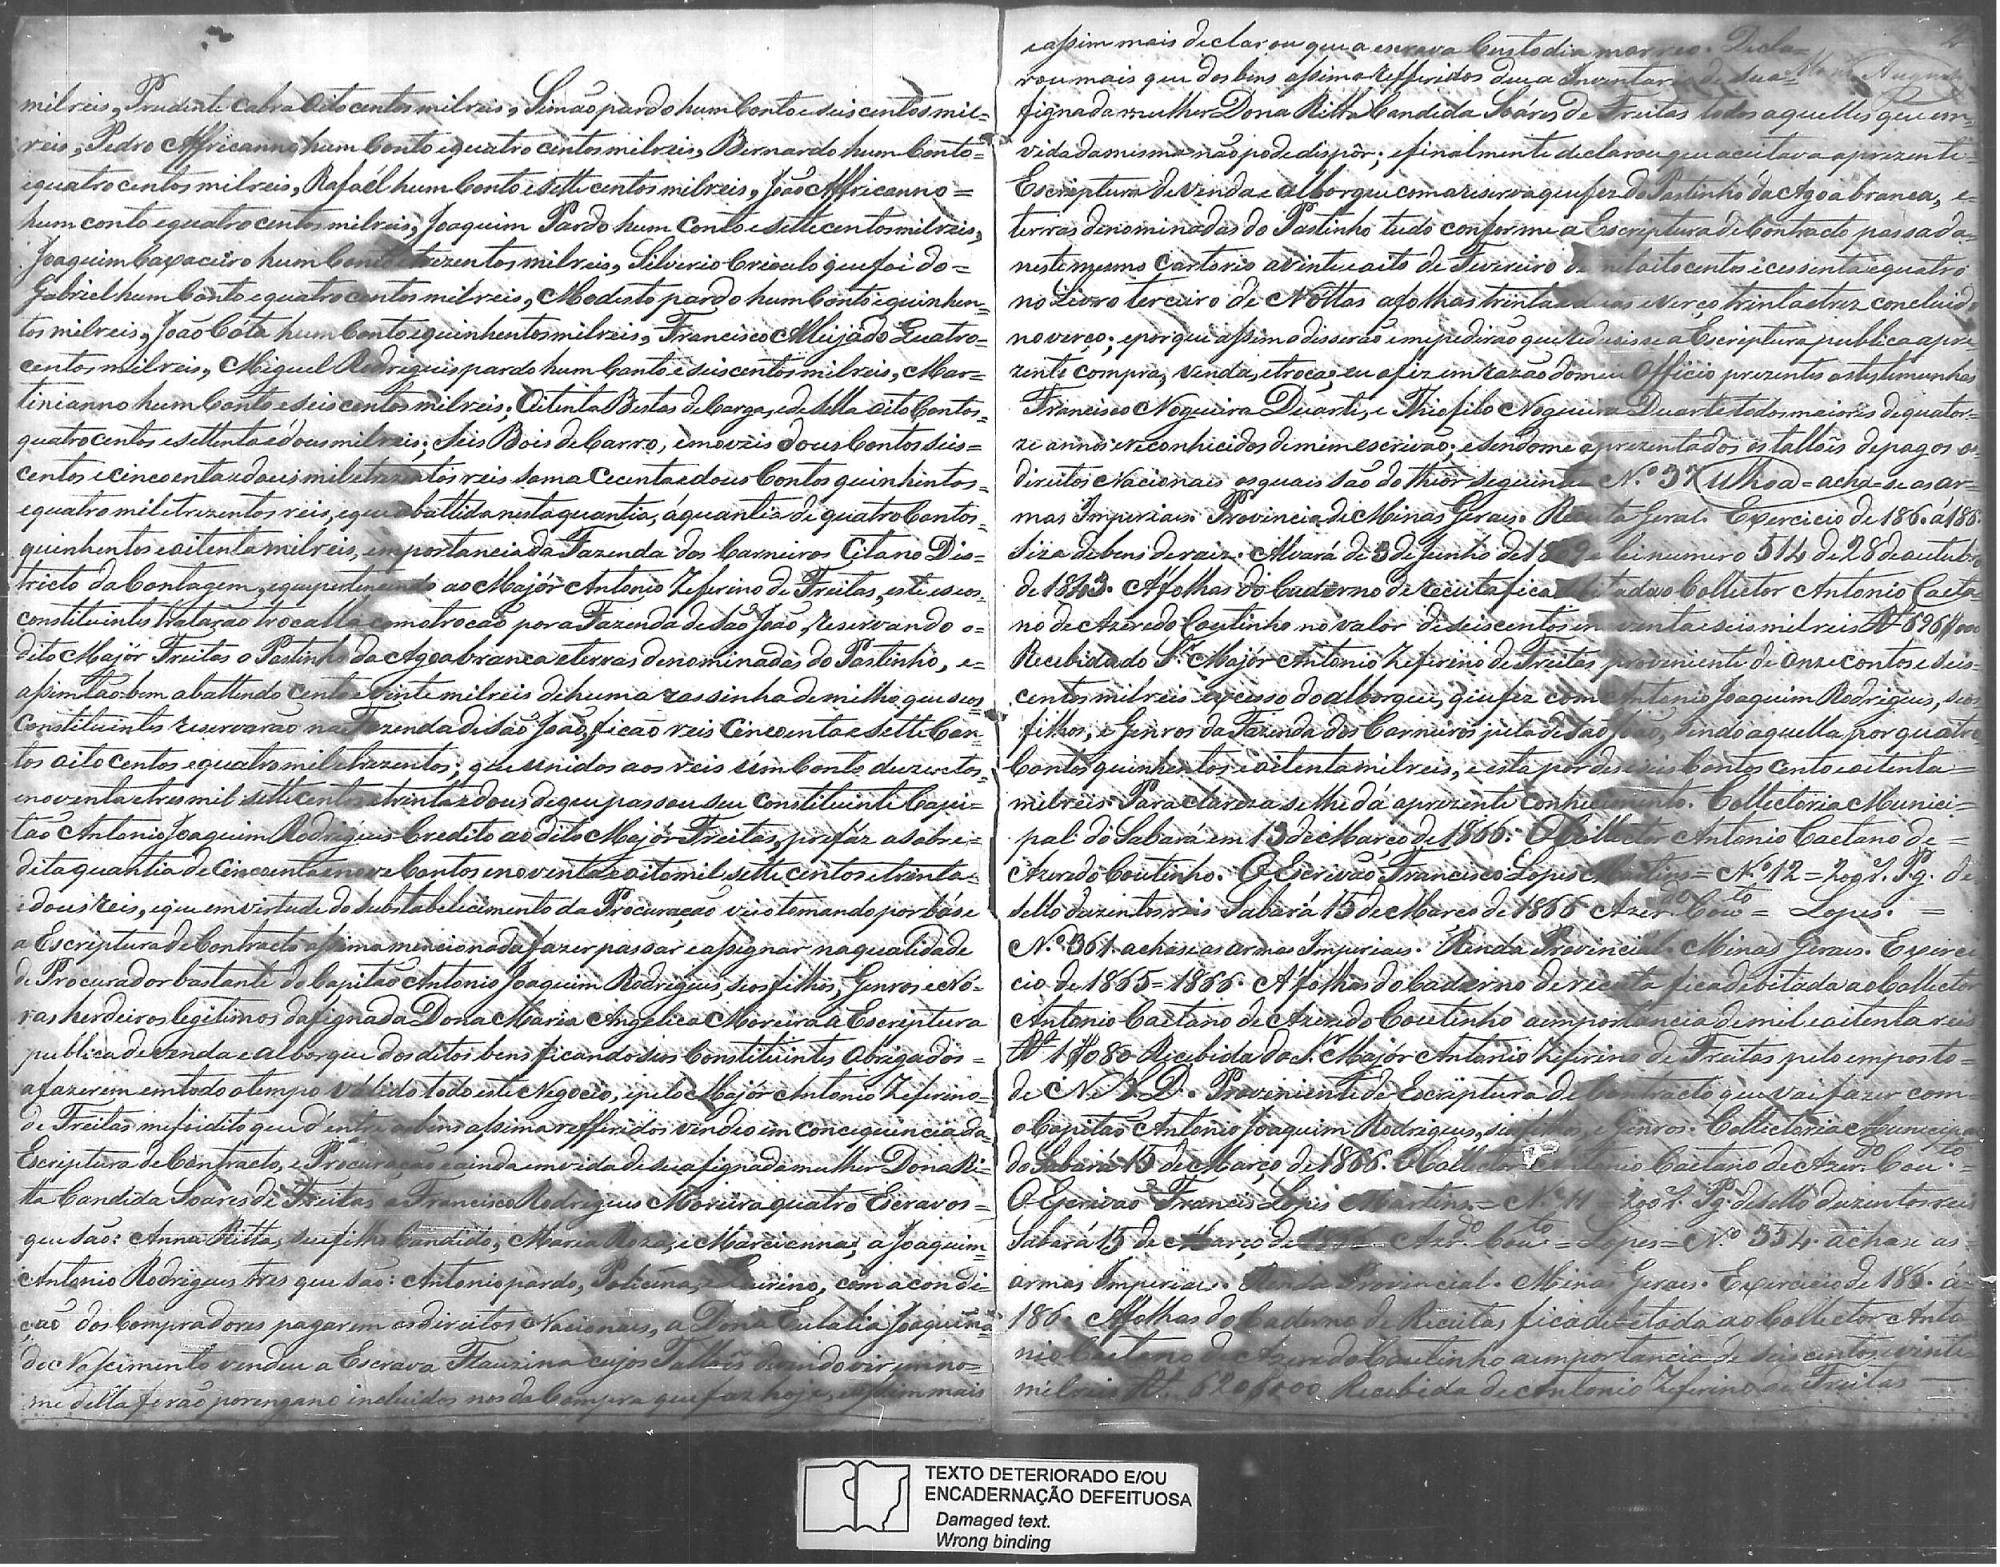 milreis, Prudente Cabra Oito centos milreis, Simão pardo hum Conto e seis centos mil=
reis, Pedro Affricanno hum Conto e quatro centos milreis, Bernardo hum Conto=
e quatro centos milreis, Rafael hum Conto e sette centos milreis, João Affricanno=
hum conto e quatro centos milreis, Joaquim Pardo hum Conto e sette centos milreis,
Joaquim hum Conto e trezentos milreis, Silverio Crioulo que foi do=
Gabriel hum Conto e quatro centos milreis, Modesto pardo hum Conto e quinhen=
tos milreis, João Cóta hum Conto e quinhentos milreis, Francisco Aleijado Quatro=
centos milreis, Miguel Rodrigues pardo hum Conto e seis centos milreis, Mar=
tinianno hum Conto e seis centos milreis; Oitenta Bestas de Carga, e de sella oito Contos=
quatro centos e settenta e dous milreis; Seis Bois de Carro, e moveis dous Contos seis=
centos e cincoenta e dous mil e trezentos reis soma Cecenta e dous Contos quinhintos=
e quatro mil e trezentos reis, e que abattida nesta quantia, á quantia de quatro Contos=
quinhentos e oitenta milreis, importancia da Fazenda dos Carneiros Cita no Dis=
tricto da Contagem, e que pertencendo ao Majór Antonio Zeferino de Freitas, este e seos
constituintes tratarão trocalla como trocão por a Fazenda de São João, reservando o=
dito Majór Freitas o Pastinho da Agoa branca e terras denominadas do Pastinho, e=
assim tão bem abattendo Cento e vinte milreis de huma rossinha de milho que seos
Constituintes reservarão na Fazenda de São João, ficão reis Cincoenta e sette Con=
tos oito centos e quatro mil e trezentos; que unidos aos reis úm Conto duzentos,
e noventa e tres mil sette centos e trinta e dous de que passou seu Constituinte Capi=
tão Antonio Joaquim Rodrigues Credito ao dito Majór Freitas, prefáz a sobre=
dita quantia de Cincoenta e nove Contos e noventa e oito mil, sette centos e trinta=
e dous reis, e que em virtude do Substabelecimento da Procuração veio tomando por báse
a Escriptura de Contracto assima mencionada fazer passar e assignar na qualidade
de Procurador bastante do Capitão Antonio Joaquim Rodrigues, seos filhos, Genros e Nó=
ras herdeiros legitimos da fignada Dona Maria Angelica Moreira a Escriptura
publica de venda e alborque dos ditos bens ficando seos Constituintes Obrigados=
a fazerem em todo o tempo válido todo este Negocio, e pelo Majór Antonio Zeferino=
de Freitas me foi dito que d'entre os bens assima refferidos vendeo em concequencia da
Escriptura de Contracto, e Procuração e ainda em vida de sua fignada mulher Dona Ri=
tta Candida Soares de Freitas a Francisco Rodrigues Moreira quatro Escravos=
que são: Anna Ritta, seu filho Candido, Maria Roza, e Marcianna; a Joaquim=
Antonio Rodrigues tres que são: Antonio pardo, Policena, e Laurino, com a condi=
ção dos Compradores pagarem os direitos Nacionaes, a Dona Eulalia Joaquina
do Nascimento vendeu a Escrava Flauzina cujos Tallões devendo vir em no=
me della forão por engano incluidos nos da Compra que faz hoje, e assim mais
e assim mais declarou que a escrava Custodia morreo. Decla=
rou mais que dos bens assima refferidos deu a Inventario de sua=
fignada mulher Dona Ritta Candida Soáres de Freitas todos aquelles que em=
vida da mesma não pode dispôr; e finalmente declarou que aceitava a prezente=
Escriptura de venda e alborque com a reserva que fez do Pastinho da Agoa branca, e=
terras denominadas do Pastinho tudo conforme a Escriptura de Contracto passada=
neste mesmo Cartorio a vinte e oito de Fevereiro de mil oito centos e cessenta e quatro
no Livro terceiro de Nottas a folhas trinta e duas e verço, trinta e trez concluido
no verço; e por que assim o disserão e me pedirão que redusisse a Escriptura publica a pre
zente compra, venda, e troca; eu a fiz em razão do meu Officio prezentes as testimunhas
Francisco Nogueira Duarte, e Thiofilo Nogueira Duarte todos maiores de quator=
ze annos e reconhecidos de mim escrivão; e sendo me aprezentados os tallões de pagos os
direitos Nacionaes os quais são do thiôr seguinte Nº 37 Ulhoa = acha-se as ar=
mas Imperiais. Provincia de Minas Gerais. Receita Geral. Exercicio de 186. á 186.
Siza de bens de raiz. Alvará de 3 de Junho de 1809 e lei numero 514 de 28 de outubro
de 1843. Á folhas do Caderno de receita fica debitada ao Collector Antonio Caeta
no de Azeredo Coutinho no valor de seis centos e noventa e seis milreis Rs 696$000
Recebida do Sr Majór Antonio Zeferino de Freitas proveniente de onze contos e seis=
centos milreis excesso do alborque, que fez com Antonio Joaquim Rodrigues, seos
filhos, e Genros da Fazenda dos Carneiros pela de São João, sendo aquella por quatro
Contos quinhentos e oitenta milreis, e esta por dezeseis Contos cento e oitenta=
milreis. Para clareza se lhe dá a prezente conhecimento. Collectoria Munici=
pal do Sabará em 13 de Março de 1866. O Collector Antonio Caetano de=
Azeredo Coutinho. O Escrivão Francisco Lopes Martins = Nº 12 = 200 r. Pg. de
sello duzentos reis Sabará 15 de Março de 1866 Azerdo Couto = Lopes. =
Nº 361. acha se as armas Imperiaes. Renda Provincial. Minas Gerais. Exerci
cio de 1865=1866. Á folhas do Caderno de receita fica debitada ao Collector
Antonio Caetano de Azeredo Coutinho a importancia de mil e oitenta reis
Rs 1$080 Recebida do Sr Majór Antonio Zeferino de Freitas pelo imposto=
de N. e V. D. Proveniente de Escriptura de Contracto que vai fazer com=
o Capitão Antonio Joaquim Rodrigues, seus filhos, e Genros. Collectoria Municipal
do Sabará 15 de Março de 1866. O Collector Antonio Caetano de Azerdo Couto=
O Escrivão Francis Lopes Martins = Nº 11 = 200 r. Pg. de sello duzentos reis
Sabará 15 de Março de 1866 Azerdo Couto = Lopes = Nº 354. acha se as
armas Imperiaes. Renda Provincial. Minas Geraes. Exercicio de 186. á
186. Á folhas do Caderno de Receitas fica debitada ao Collector Anto
nio Caetano de Azeredo Coutinho a importancia de seis centos e vinte
milreis Rs 620$000 Recebida de Antonio Zeferino de Freitas
TEXTO DETERIORADO E/OU
ENCADERNAÇÃO DEFEITUOSA
Damaged text.
Wrong binding